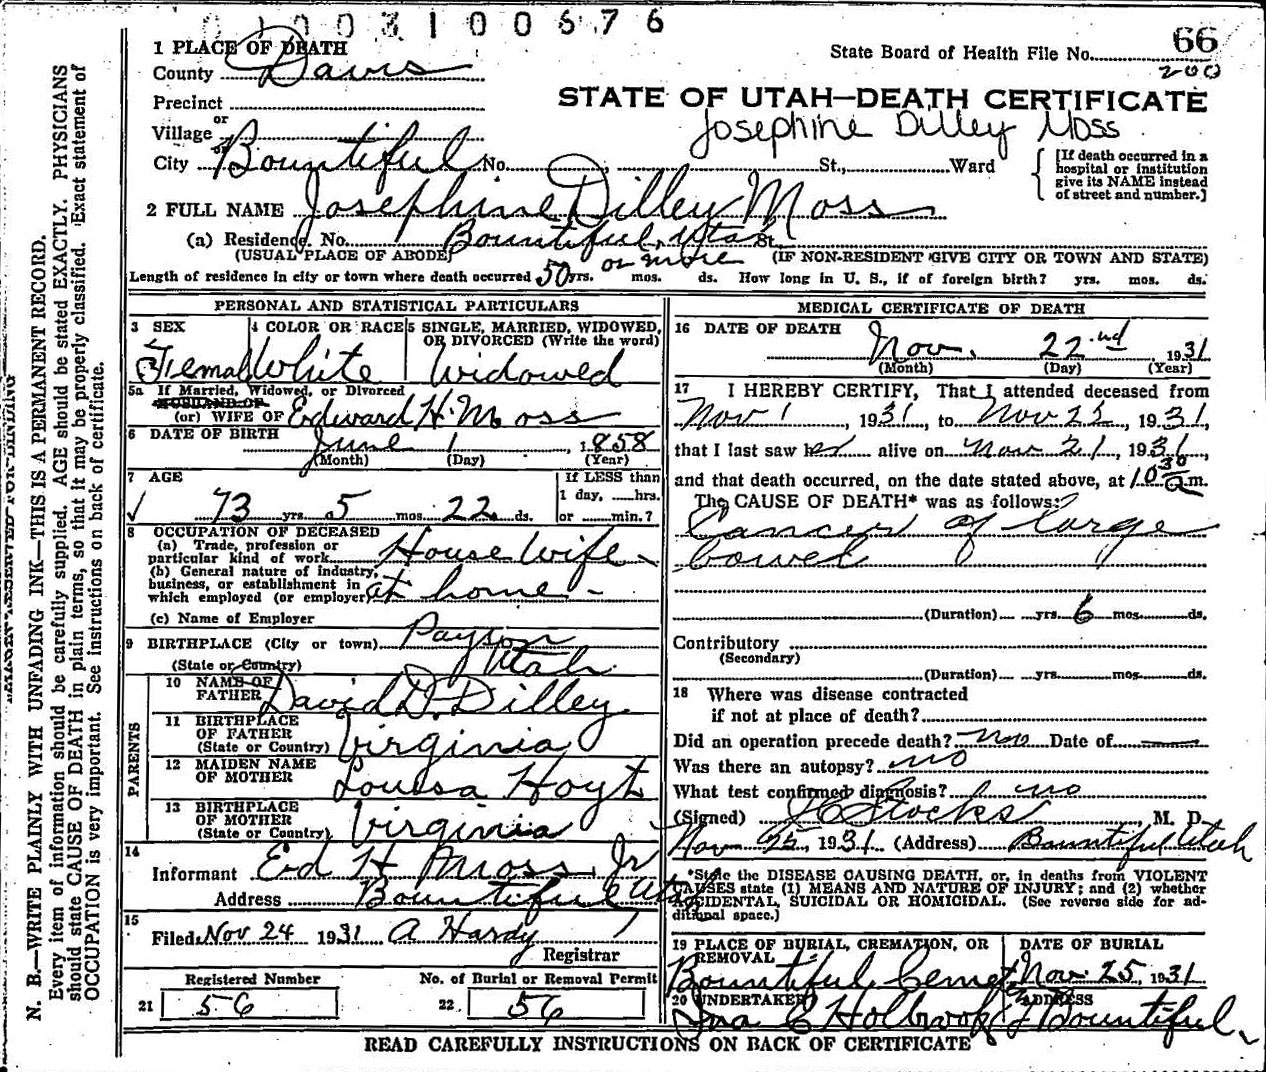 0 1 0 0 3 1 0 0 6 7 6
1 PLACE OF DEATH
State Board of Health File No. 66
200
County Davis
Precinct
STATE OF UTAH—DEATH CERTIFICATE
or
Village
Josephine Dilley Moss
or
City Bountiful No. , St., Ward
[If death occurred in a hospital or institution give its NAME instead of street and number.]
2 FULL NAME Josephine Dilley Moss
(a) Residence. No. Bountiful, Utah St.
(USUAL PLACE OF ABODE) (IF NON-RESIDENT GIVE CITY OR TOWN AND STATE)
Length of residence in city or town where death occurred 50 or more yrs. mos. ds. How long in U. S., if of foreign birth? yrs. mos. ds.
PERSONAL AND STATISTICAL PARTICULARS
3 SEX
Female
4 COLOR OR RACE
White
5 SINGLE, MARRIED, WIDOWED,
OR DIVORCED (Write the word)
Widowed
5a If Married, Widowed, or Divorced
HUSBAND OF
(or) WIFE OF Edward H. Moss
6 DATE OF BIRTH
June 1, 1858
(Month) (Day) (Year)
7 AGE
If LESS than
1 day, hrs.
or min.?
✓ 73 yrs. 5 mos. 22 ds.
8 OCCUPATION OF DECEASED
(a) Trade, profession or
particular kind of work House Wife
(b) General nature of industry,
business, or establishment in
which employed (or employer) at home -
(c) Name of Employer
9 BIRTHPLACE (City or town) Payson
(State or Country) Utah
PARENTS
10 NAME OF
FATHER David D. Dilley
11 BIRTHPLACE
OF FATHER
(State or Country) Virginia
12 MAIDEN NAME
OF MOTHER Louisa Hoyt
13 BIRTHPLACE
OF MOTHER
(State or Country) Virginia
14
Informant Ed H Moss Jr
Address Bountiful Utah
15
Filed Nov 24 1931 A Hardy
Registrar
Registered Number
21 56
No. of Burial or Removal Permit
22 56
MEDICAL CERTIFICATE OF DEATH
16 DATE OF DEATH
Nov. 22nd 1931
(Month) (Day) (Year)
17 I HEREBY CERTIFY, That I attended deceased from
Nov 1, 1931, to Nov 22, 1931,
that I last saw her alive on Nov 21, 1931,
and that death occurred, on the date stated above, at 10 30 a.m.
The CAUSE OF DEATH* was as follows:
Cancer of large
bowel
(Duration) yrs. 6 mos. ds.
Contributory
(Secondary)
(Duration) yrs. mos. ds.
18 Where was disease contracted
if not at place of death?
Did an operation precede death? no Date of
Was there an autopsy? no
What test confirmed diagnosis? no
(Signed) J C Stocks, M. D.
Nov 25, 1931 (Address) Bountiful Utah
*State the DISEASE CAUSING DEATH, or, in deaths from VIOLENT
CAUSES state (1) MEANS AND NATURE OF INJURY; and (2) whether
ACCIDENTAL, SUICIDAL OR HOMICIDAL. (See reverse side for ad-
ditional space.)
19 PLACE OF BURIAL, CREMATION, OR
REMOVAL
Bountiful Cemet
DATE OF BURIAL
Nov. 25, 1931
20 UNDERTAKER
C Holbrook
ADDRESS
Bountiful
READ CAREFULLY INSTRUCTIONS ON BACK OF CERTIFICATE
N. B.—WRITE PLAINLY WITH UNFADING INK—THIS IS A PERMANENT RECORD.
Every item of information should be carefully supplied. AGE should be stated EXACTLY. PHYSICIANS
should state CAUSE OF DEATH in plain terms, so that it may be properly classified. Exact statement of
OCCUPATION is very important. See instructions on back of certificate.